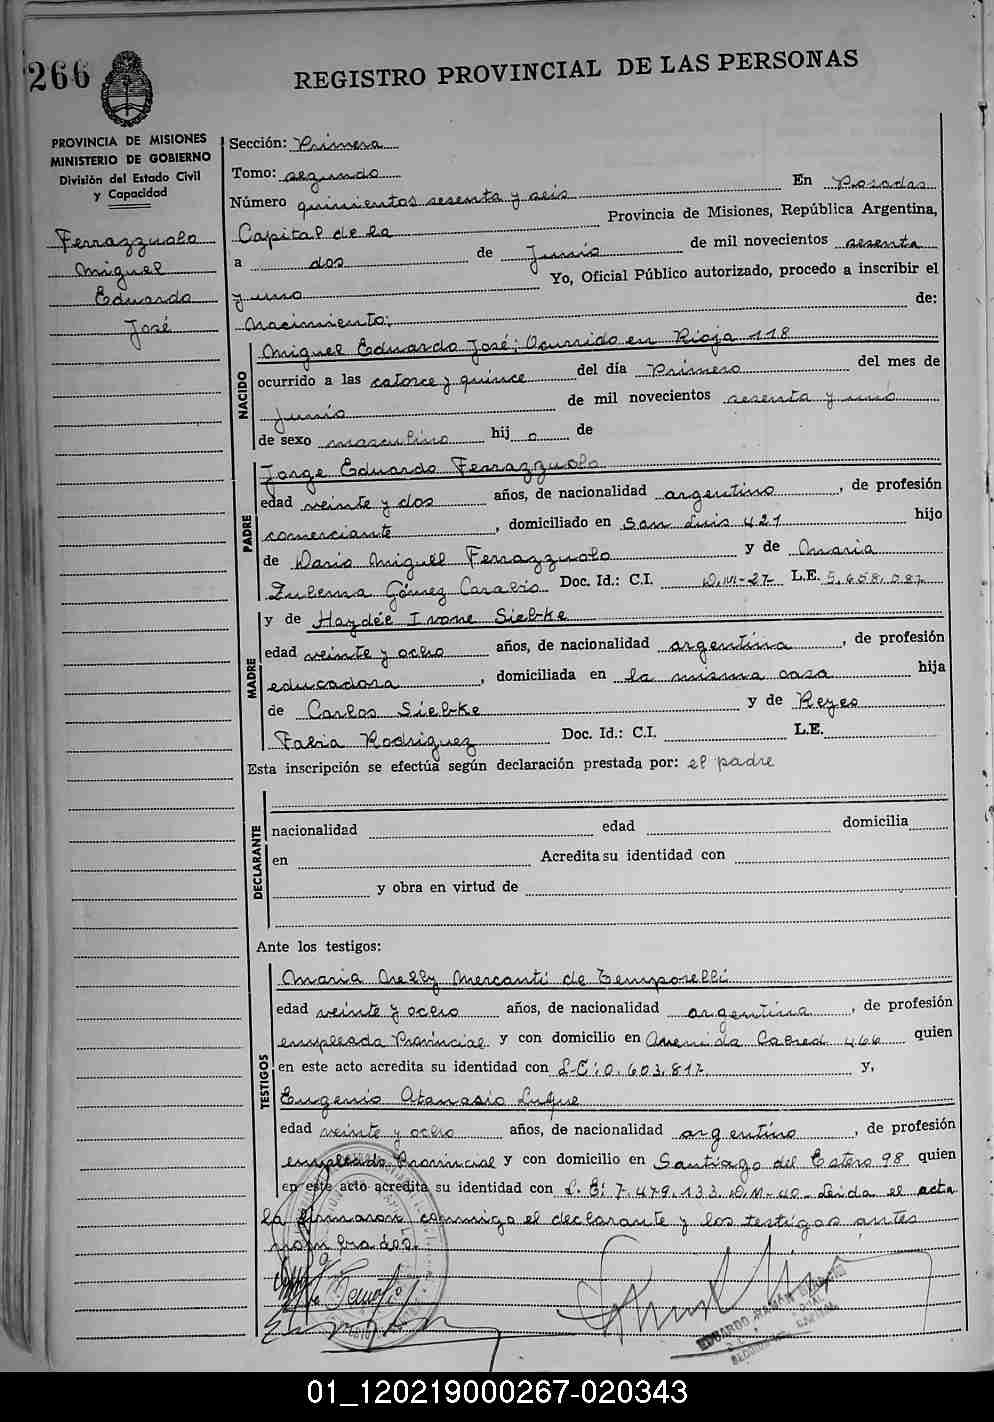 266
REGISTRO PROVINCIAL DE LAS PERSONAS
PROVINCIA DE MISIONES
MINISTERIO DE GOBIERNO
División del Estado Civil
y Capacidad
Ferrazzuolo
Miguel
Eduardo
José
Sección: Primera
Tomo: segundo
Número quinientos sesenta y seis En Posadas
Capital de la Provincia de Misiones, República Argentina,
a dos de Junio de mil novecientos sesenta
y uno Yo, Oficial Público autorizado, procedo a inscribir el
Nacimiento: de:
NACIDO
Miguel Eduardo José; Ocurrido en Rioja 118
ocurrido a las catorce y quince del día Primero del mes de
Junio de mil novecientos sesenta y uno
de sexo masculino hij o de
PADRE
Jorge Eduardo Ferrazzuolo
edad veinte y dos años, de nacionalidad argentino, de profesión
comerciante, domiciliado en San Luis 421 hijo
de Dario Miguel Ferrazzuolo y de Maria
Zulema Gómez Doc. Id.: C.I. D.M-27 L.E. 5.658.087
MADRE
y de Haydée Ivone Siebke
edad veinte y ocho años, de nacionalidad argentina, de profesión
educadora, domiciliada en la misma casa hija
de Carlos Siebke y de Reyes
Fabia Rodriguez Doc. Id.: C.I. L.E.
Esta inscripción se efectúa según declaración prestada por: el padre
DECLARANTE
nacionalidad edad domicilia
en Acredita su identidad con
y obra en virtud de
Ante los testigos:
TESTIGOS
Maria Nelly Mercanti de Temporelli
edad veinte y ocho años, de nacionalidad argentina, de profesión
empleada Provincial y con domicilio en Avenida Cabred 466 quien
en este acto acredita su identidad con L.C: 0.603.817 y,
Eugenio Atanasio Luque
edad veinte y ocho años, de nacionalidad argentino, de profesión
empleado Provincial y con domicilio en Santiago del Estero 98 quien
en este acto acredita su identidad con L.E: 7.479.133 D.M-40-Leida el acta
la firmaron conmigo el declarante y los testigos antes
nombrados.
EDUARDO RAMÓN
01_120219000267-020343